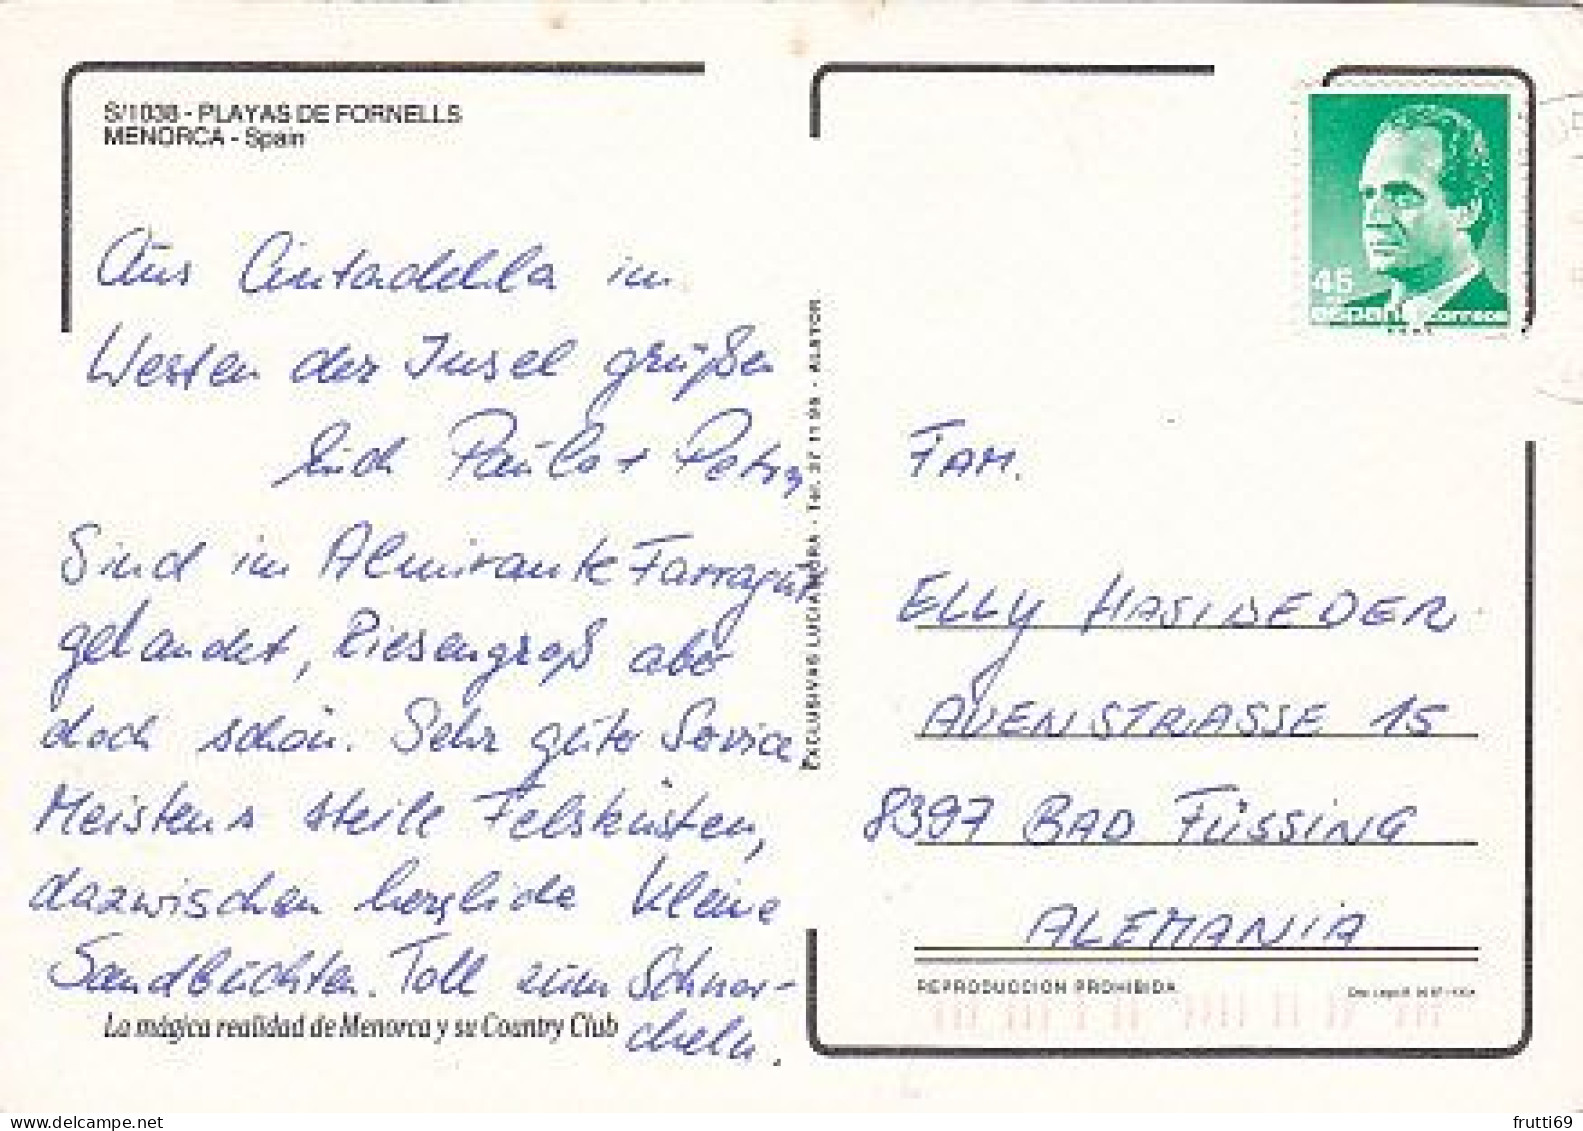 S/1038 - PLAYAS DE FORNELLS
MENORCA - Spain
Aus Ciutadella im
Westen der Insel grüßen
Euch Paul + Petra
Sind im Almirante Farragut
gelandet, Riesengroß aber
doch schön. Sehr guter Service
Meistens steile Felsküsten,
dazwischen herzliche kleine
Sandbuchten. Toll zum Schnor-
cheln.
La mágica realidad de Menorca y su Country Club
EXCLUSIVAS LUCIA MORA - Tel. 37 11 98 - ALAYOR
45
españa correos
FAM.
ELLY HASLWEDER
AUENSTRASSE 15
8397 BAD FÜSSING
ALEMANIA
REPRODUCCION PROHIBIDA
frutti69